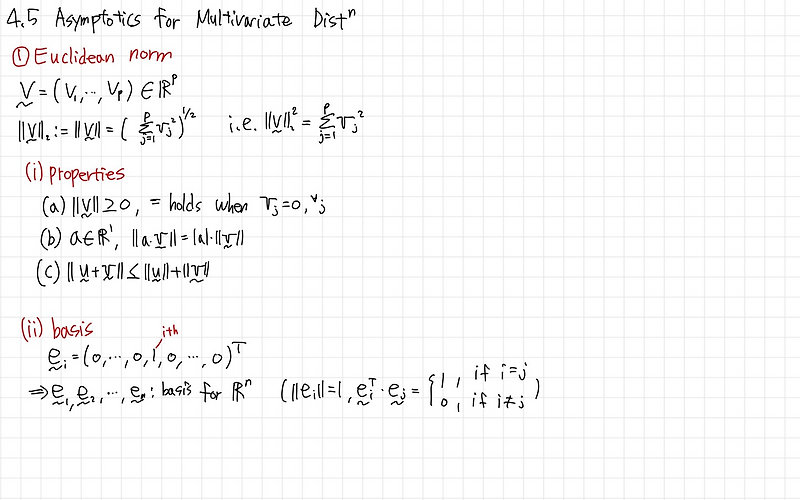 4.5 Asymptotics for Multivariate Distⁿ
① Euclidean norm
V = (V₁, ⋯, Vₚ) ∈ ℝᵖ
||V||₂ := ||V|| = ( Σⱼ₌₁ᵖ vⱼ² )^{1/2} i.e. ||V||₂² = Σⱼ₌₁ᵖ vⱼ²
(i) properties
(a) ||V|| ≥ 0, = holds when vⱼ = 0, ∀j
(b) a ∈ ℝ¹, ||a·v|| = |a|·||v||
(c) ||u + v|| ≤ ||u|| + ||v||
(ii) basis
ith
eᵢ = (0, ⋯, 0, 1, 0, ⋯, 0)ᵀ
⇒ e₁, e₂, ⋯, eₚ : basis for ℝⁿ ( ||eᵢ|| = 1, eᵢᵀ · eⱼ = { 1, if i = j
0, if i ≠ j )